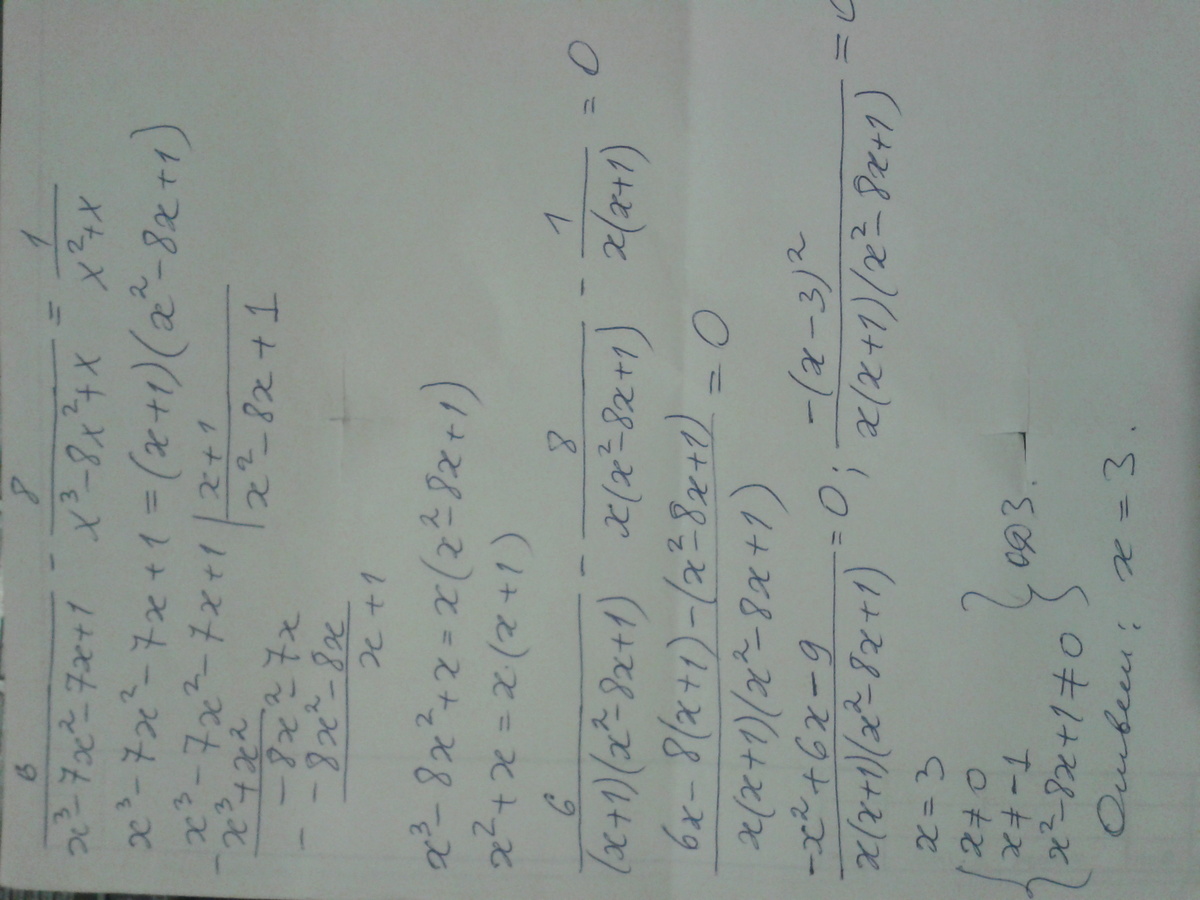 6/(x³-7x²-7x+1) - 8/(x³-8x²+x) = 1/(x²+x)
x³-7x²-7x+1 = (x+1)(x²-8x+1)
- x³-7x²-7x+1 | x+1
x³+x² | x²-8x+1
- -8x²-7x
-8x²-8x
x+1
x³-8x²+x = x(x²-8x+1)
x²+x = x·(x+1)
6/((x+1)(x²-8x+1)) - 8/(x(x²-8x+1)) - 1/(x(x+1)) = 0
(6x-8(x+1)-(x²-8x+1))/(x(x+1)(x²-8x+1)) = 0
(-x²+6x-9)/(x(x+1)(x²-8x+1)) = 0; -(x-3)²/(x(x+1)(x²-8x+1)) = 0
x=3
{ x≠0
x≠-1 } одз.
x²-8x+1≠0
Ответ: x=3.